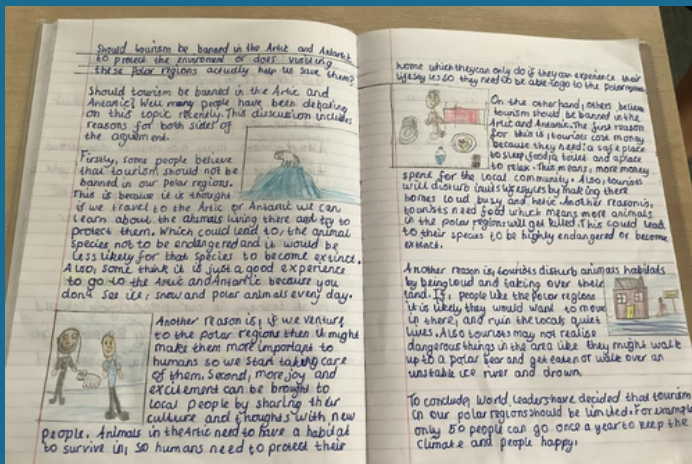 Should tourism be banned in the Artic and Antartic
to protect the enviroment or does visiting
these polar regions actually help us save them?
Should tourism be banned in the Artic and
Antartic? Well many people have been debating
on this topic recently. This discussion includes
reasons for both sides of
the argument.
Firstly, some people believe
that tourism should not be
banned in our polar regions.
This is because it is thought
if we travel to the Artic or Antartic we can
learn about the animals living there and try to
protect them. Which could lead to, the animal
species not to be endangered and it would be
less likely for that species to become extinct.
Also, some think it is just a good experience
to go to the Artic and Antartic because you
don't see ice, snow and polar animals every day.
Another reason is, if we venture
to the polar regions then it might
make them more important to
humans so we start taking care
of them. Second, more joy and
excitement can be brought to
local people by sharing their
culture and thoughts with new
people. Animals in the Artic need to have a habitat
to survive in, so humans need to protect their
home which they can only do if they can experience their
lifestyles so they need to be able to go to the polar regions.
On the other hand, others believe
tourism should be banned in the
Artic and Antartic. The first reason
for this is, tourists cost money
because they need: a safe place
to sleep, food, a toilet and a place
to relax. This means, more money
spent for the local community. Also, tourists
will disturb inuits lifestyles by making there
homes loud, busy, and hectic. Another reason is,
tourists need food which means more animals
in the polar regions will get killed. This could lead
to their species to be highly endangered or become
extinct.
Another reason is, tourists disturb animals habitats
by being loud and taking over their
land. If, people like the polar regions
it is likely they would want to move
in there, and ruin the locals quiet
lives. Also tourists may not realise
dangerous things in the area like they might walk
up to a polar bear and get eaten or walk over an
unstable ice river and drown.
To conclude, World leaders have decided that tourism
in our polar regions should be limited. For example
only 50 people can go once a year to keep the
climate and people happy.